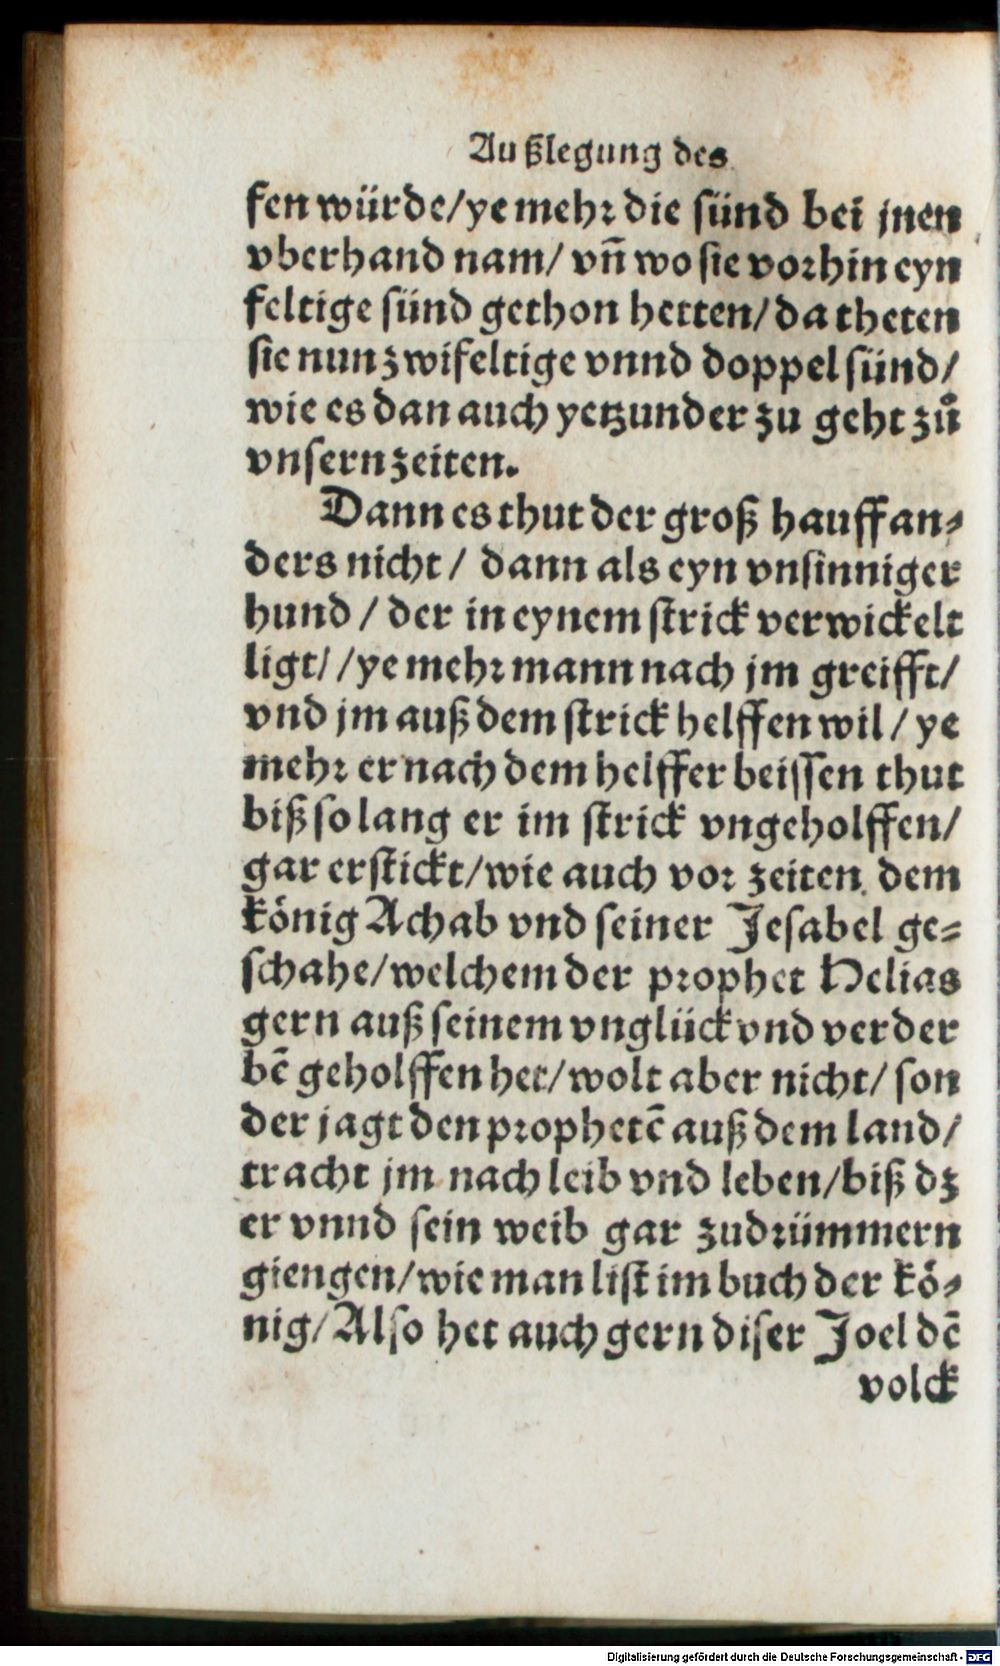 Außlegung des
fen würde/ye mehr die sünd bei jnen
vberhand nam/ vñ wo sie vorhin eyn
feltige sünd gethon hetten/da theten
sie nun zwifeltige vnnd doppel sünd/
wie es dan auch yetzunder zu geht zů
vnsern zeiten.
Dann es thut der groß hauff an⸗
ders nicht / dann als eyn vnsinniger
hund / der in eynem strick verwickelt
ligt/ /ye mehr mann nach jm greifft/
vnd jm auß dem strick helffen wil / ye
mehr er nach dem helffer beissen thut
biß so lang er im strick vngeholffen/
gar erstickt/wie auch vor zeiten dem
könig Achab vnd seiner Jesabel ge⸗
schahe/welchem der prophet Helias
gern auß seinem vnglück vnd verder
bē geholffen het/wolt aber nicht/ son
der jagt den prophetē auß dem land/
tracht jm nach leib vnd leben/biß dz
er vnnd sein weib gar zudrümmern
giengen/wie man list im buch der kö⸗
nig/Also het auch gern diser Joel dē
volck
Digitalisierung gefördert durch die Deutsche Forschungsgemeinschaft - DFG